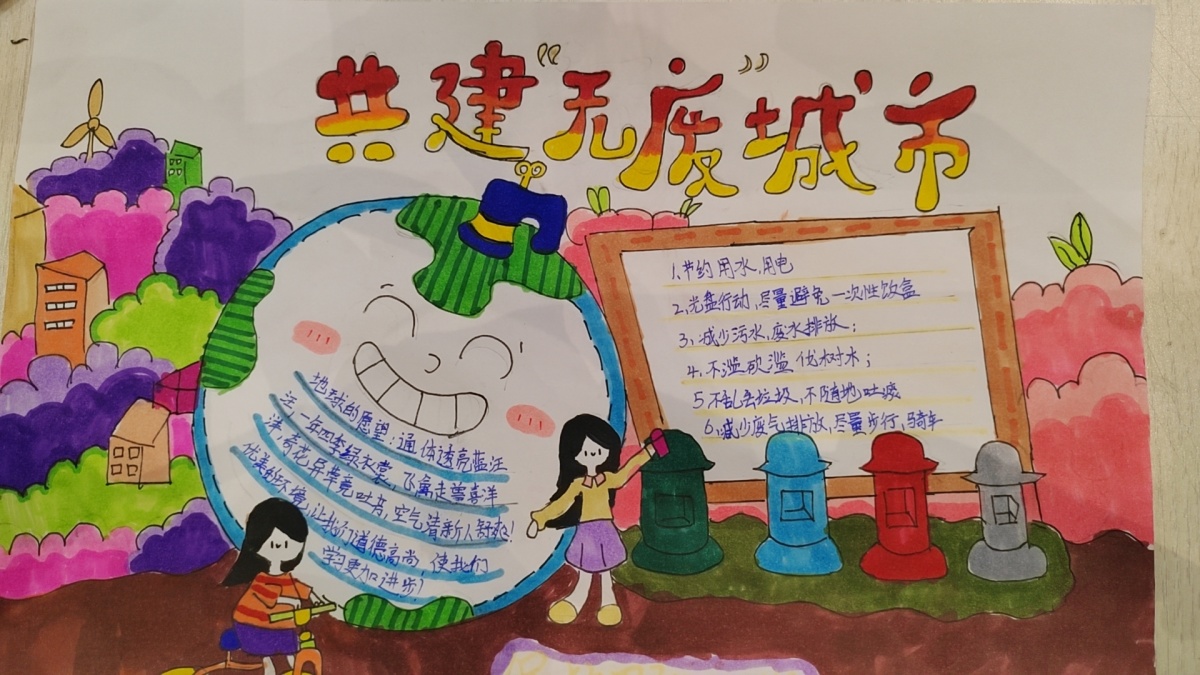 共建“无废”城市
1、节约用水、用电
2、光盘行动,尽量避免一次性饮盒
3、减少污水,废水排放;
4、不滥砍滥伐树木;
5、不乱丢垃圾,不随地吐痰
6、减少废气排放,尽量步行、骑车
地球的愿望:通体透亮蓝汪
汪,一年四季绿衣裳,飞禽走兽喜洋
洋,奇花异草竞吐芳,空气清新人舒爽!
优美的环境,让我们道德高尚,使我们
学习更加进步!